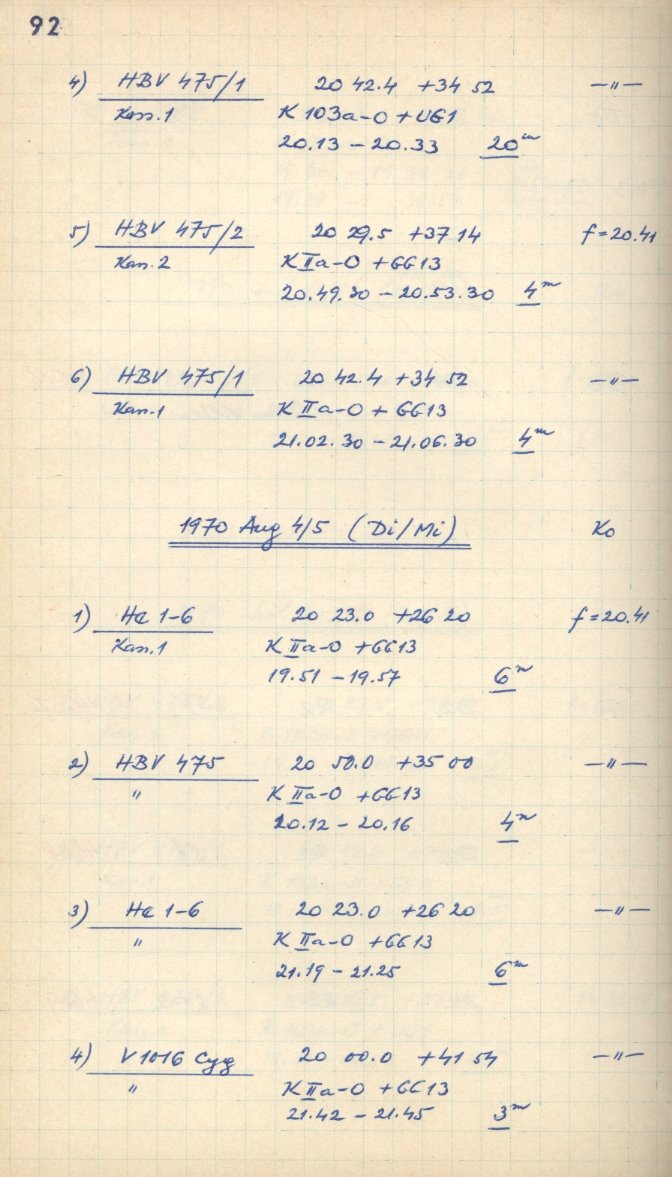 92
4) HBV 475/1 20 42.4 +34 52 —〃—
Kass.1 K 103a-O + UG1
20.13 – 20.33 20ᵐ
5) HBV 475/2 20 29.5 +37 14 f=20.41
Kass.2 K IIa-O + GG13
20.49.30 – 20.53.30 4ᵐ
6) HBV 475/1 20 42.4 +34 52 —〃—
Kass.1 K IIa-O + GG13
21.02.30 – 21.06.30 4ᵐ
1970 Aug 4/5 (Di/Mi) Ko
1) He 1-6 20 23.0 +26 20 f=20.41
Kass.1 K IIa-O + GG13
19.51 – 19.57 6ᵐ
2) HBV 475 20 50.0 +35 00 —〃—
〃 K IIa-O + GG13
20.12 – 20.16 4ᵐ
3) He 1-6 20 23.0 +26 20 —〃—
〃 K IIa-O + GG13
21.19 – 21.25 6ᵐ
4) V 1016 Cyg 20 00.0 +41 54 —〃—
〃 K IIa-O + GG13
21.42 – 21.45 3ᵐ